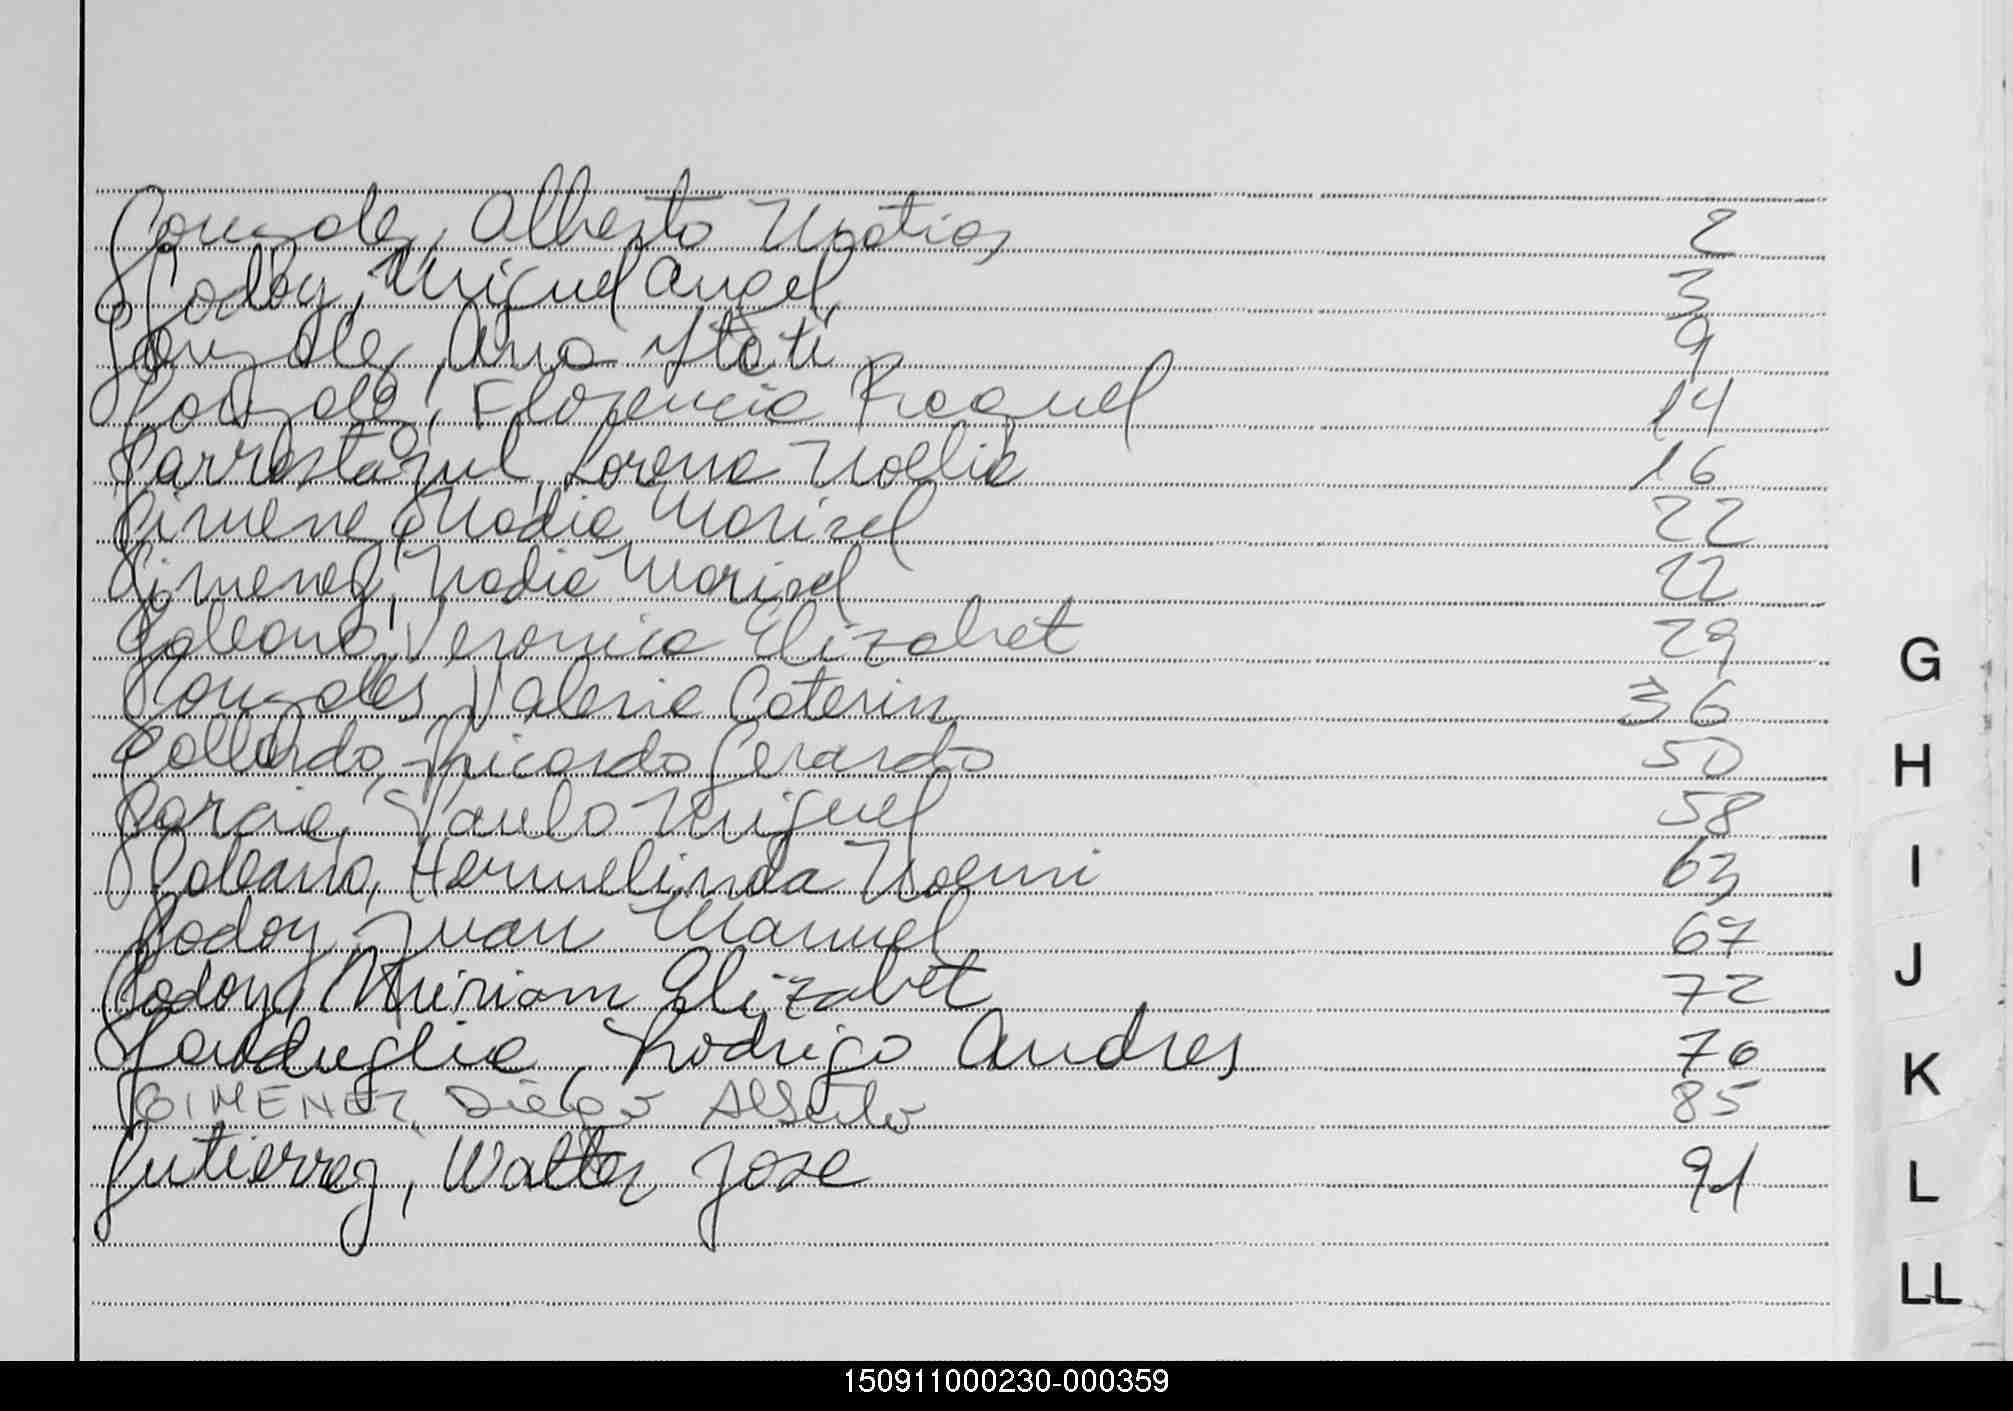 Gonzalez, Alberto Matias 2
Godoy, Miguel Angel 3
Gonzalez, Ana Itati 9
Gonzalez, Florencia Raquel 14
Lorena Noelia 16
Gimenez, Nadia Marisel 22
Gimenez, Nadia Marisel 22
Galeano, Veronica Elizabet 29
Gonzales, Valeria Caterin 36
Gallardo, Ricardo Gerardo 50
Garcia, Paulo Miguel 58
Galeano, Hermelinda Noemi 63
Godoy, Juan Manuel 67
Godoy, Miriam Elizabet 72
Ganduglia, Rodrigo Andres 76
GIMENEZ, Diego Alberto 85
Gutierrez, Walter Jose 91
G
H
I
J
K
L
LL
150911000230-000359